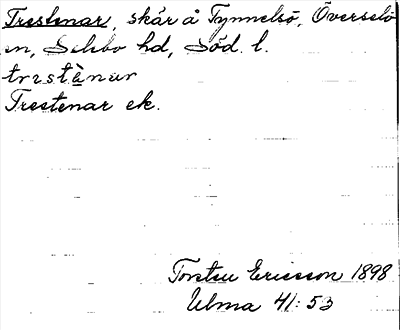 Trestenar, skär å Tynnelsö, Överselö
sn, Selebo hd, Söd. l.
trestènar
Trestenar ek.
Torsten Ericsson 1898
Ulma 41:53